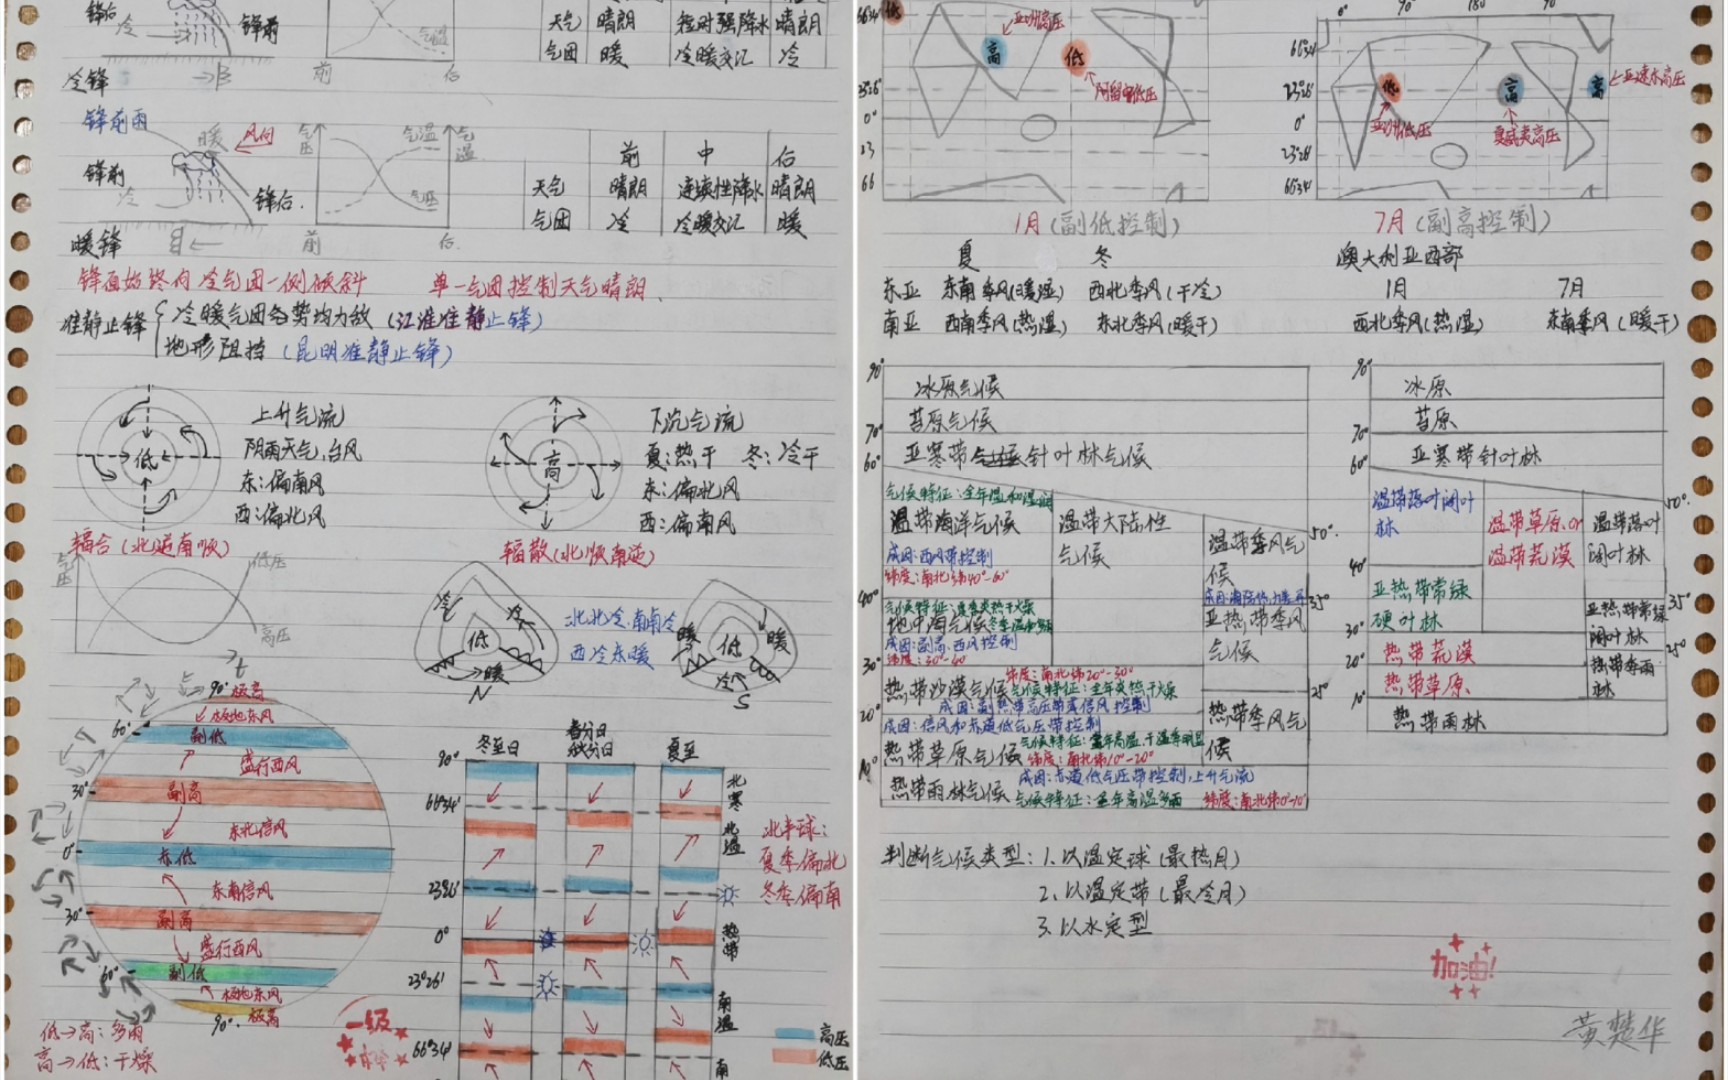 锋后
冷
锋前
气温
天气 晴朗 短时强降水 晴朗
气团 暖 冷暖交汇 冷
前 后
冷锋
锋前雨
暖
风向
锋前
冷
锋后
气压
气温
气温
气压
前 后
前 中 后
天气 晴朗 连续性降水 晴朗
气团 冷 冷暖交汇 暖
暖锋
锋面始终向冷气团一侧倾斜 单一气团控制天气晴朗
准静止锋
冷暖气团各势均力敌(江淮准静止锋)
地形阻挡(昆明准静止锋)
低
上升气流
阴雨天气,台风
东:偏南风
西:偏北风
辐合(北逆南顺)
高
下沉气流
夏:热干 冬:冷干
东:偏北风
西:偏南风
辐散(北顺南逆)
气压
低压
高压
t
冷 冷
低
暖
N
北北冷,南南冷
西冷东暖
暖 暖
低
冷
S
90° 极高
极地东风
60° 副低
盛行西风
30° 副高
东北信风
0° 赤低
东南信风
30° 副高
盛行西风
60° 副低
极地东风
90° 极高
低→高:多雨
高→低:干燥
一级
冬至日 春分日 秋分日 夏至
90°
66°34′
23°26′
0°
23°26′
66°34′
北寒
北温
热带
南温
南
北半球:
夏季偏北
冬季偏南
高压
低压
66°34′
低
亚洲高压
高
低
阿留申低压
23°26′
0°
23
66
1月(副低控制)
0° 90° 180 90
66°34′
23°26′
0°
23°26′
66°34′
低
亚洲低压
高
夏威夷高压
高
亚速尔高压
7月(副高控制)
夏 冬
东亚 东南季风(暖湿) 西北季风(干冷)
南亚 西南季风(热湿) 东北季风(暖干)
澳大利亚西部
1月 7月
西北季风(热湿) 东南季风(暖干)
90°
冰原气候
苔原气候
70°
亚寒带针叶林气候
60°
气候特征:全年温和湿润
温带海洋气候
成因:西风带控制
纬度:南北纬40°-60°
温带大陆性气候
温带季风气候
50°
40°
35°
气候特征:夏季炎热干燥
地中海气候 冬季温和多雨
成因:副高,西风控制
亚热带季风气候
30°
纬度:南北纬20°-30°
热带沙漠气候 气候特征:全年炎热干燥
成因:副热带高压带或信风控制
25°
20°
成因:信风和赤道低气压带控制
热带季风气候
热带草原气候
纬度:南北纬10°-20°
10°
成因:赤道低气压带控制,上升气流
热带雨林气候 气候特征:全年高温多雨 纬度:南北纬0°-10°
90°
冰原
苔原
70°
亚寒带针叶林
60°
温带落叶阔叶林
温带草原or温带荒漠
温带落叶阔叶林
50°
40°
亚热带常绿硬叶林
亚热带常绿阔叶林
35°
30°
热带荒漠
25°
20°
热带草原
热带季雨林
10°
热带雨林
判断气候类型:1.以温定球(最热月)
2.以温定带(最冷月)
3.以水定型
加油!
黄楚华